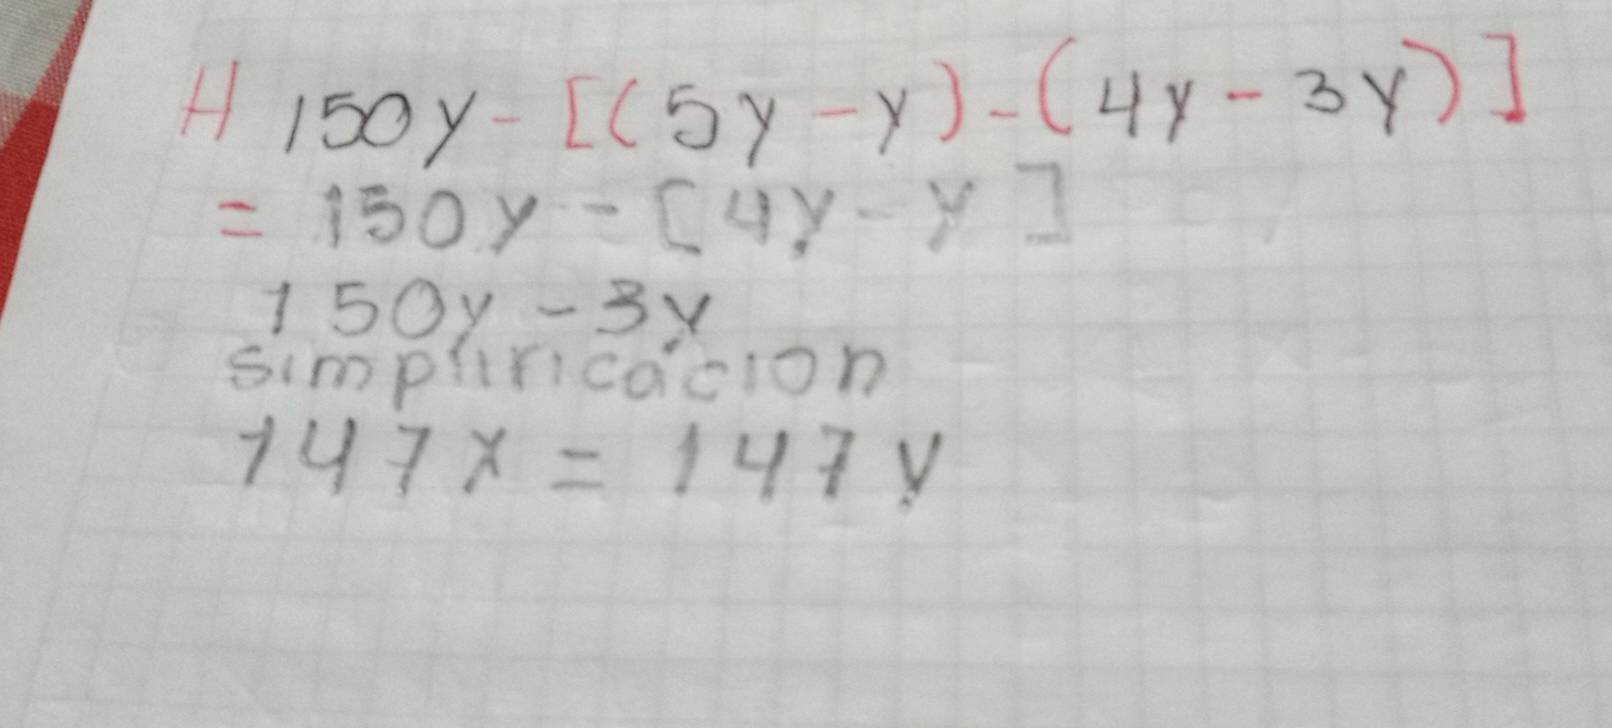 H 150y - [(5y - y) - (4y - 3y)]
= 150y - [4y - y]
150y - 3y
simpliricacion
147x = 147y